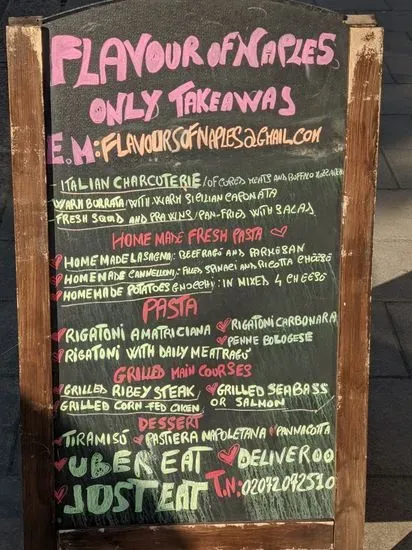 FLAVOUR OF NAPLES
ONLY TAKEAWAS
E.M: FLAVOURSOFNAPLES@GMAIL.COM
- ITALIAN CHARCUTERIE / OF CORED MEATS AND BUFFALO MOZZARELLA
- WARM BURRATA WITH WARM SICILIAN CAPONATA
- FRESH SQUID AND PRAWNS / PAN-FRIED WITH SALAD
HOME MADE FRESH PASTA
HOME MADE LASAGNA: BEEF RAGÚ AND PARMESAN
HOMEMADE CANNELLONI: FILLED SPINACI AND RICOTTA CHEESE
HOMEMADE POTATOES GNOCCHI: IN MIXED 4 CHEESE
PASTA
RIGATONI AMATRICIANA RIGATONI CARBONARA
RIGATONI WITH DAILY MEAT RAGÚ PENNE BOLOGESE
GRILLED MAIN COURSES
GRILLED RIBEY STEAK GRILLED SEABASS
GRILLED CORN-FED CIKEN OR SALMON
DESSERT
TIRAMISÚ PASTIERA NAPOLETANA PANNACOTTA
UBER EAT DELIVEROO
JUST EAT T.N: 02072072510